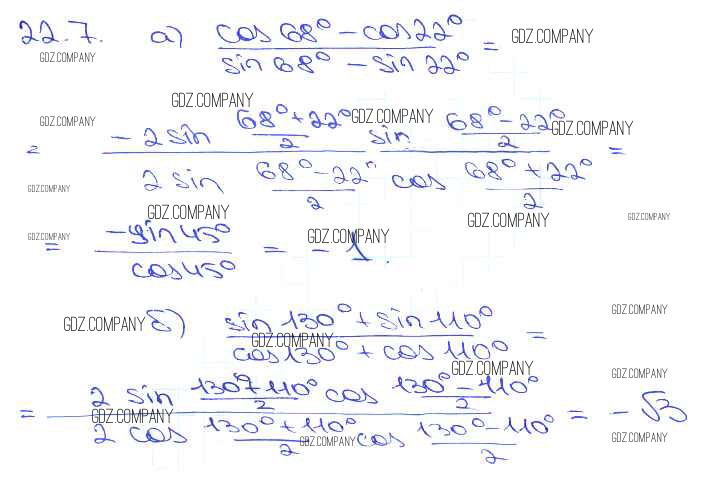 22.7. а) (cos 68° − cos 22°) / (sin 68° − sin 22°) = GDZ.COMPANY
GDZ.COMPANY
GDZ.COMPANY GDZ.COMPANY GDZ.COMPANY GDZ.COMPANY
= (−2 sin (68° + 22°)/2 sin (68° − 22°)/2) / (2 sin (68° − 22°)/2 cos (68° + 22°)/2) =
GDZ.COMPANY GDZ.COMPANY GDZ.COMPANY GDZ.COMPANY
GDZ.COMPANY GDZ.COMPANY
= (−sin 45°) / (cos 45°) = −1.
GDZ.COMPANY б) (sin 130° + sin 110°) / (cos 130° + cos 110°) = GDZ.COMPANY
GDZ.COMPANY
GDZ.COMPANY GDZ.COMPANY
= (2 sin (130° + 110°)/2 cos (130° − 110°)/2) / (2 cos (130° + 110°)/2 cos (130° − 110°)/2) = −√3
GDZ.COMPANY GDZ.COMPANY GDZ.COMPANY